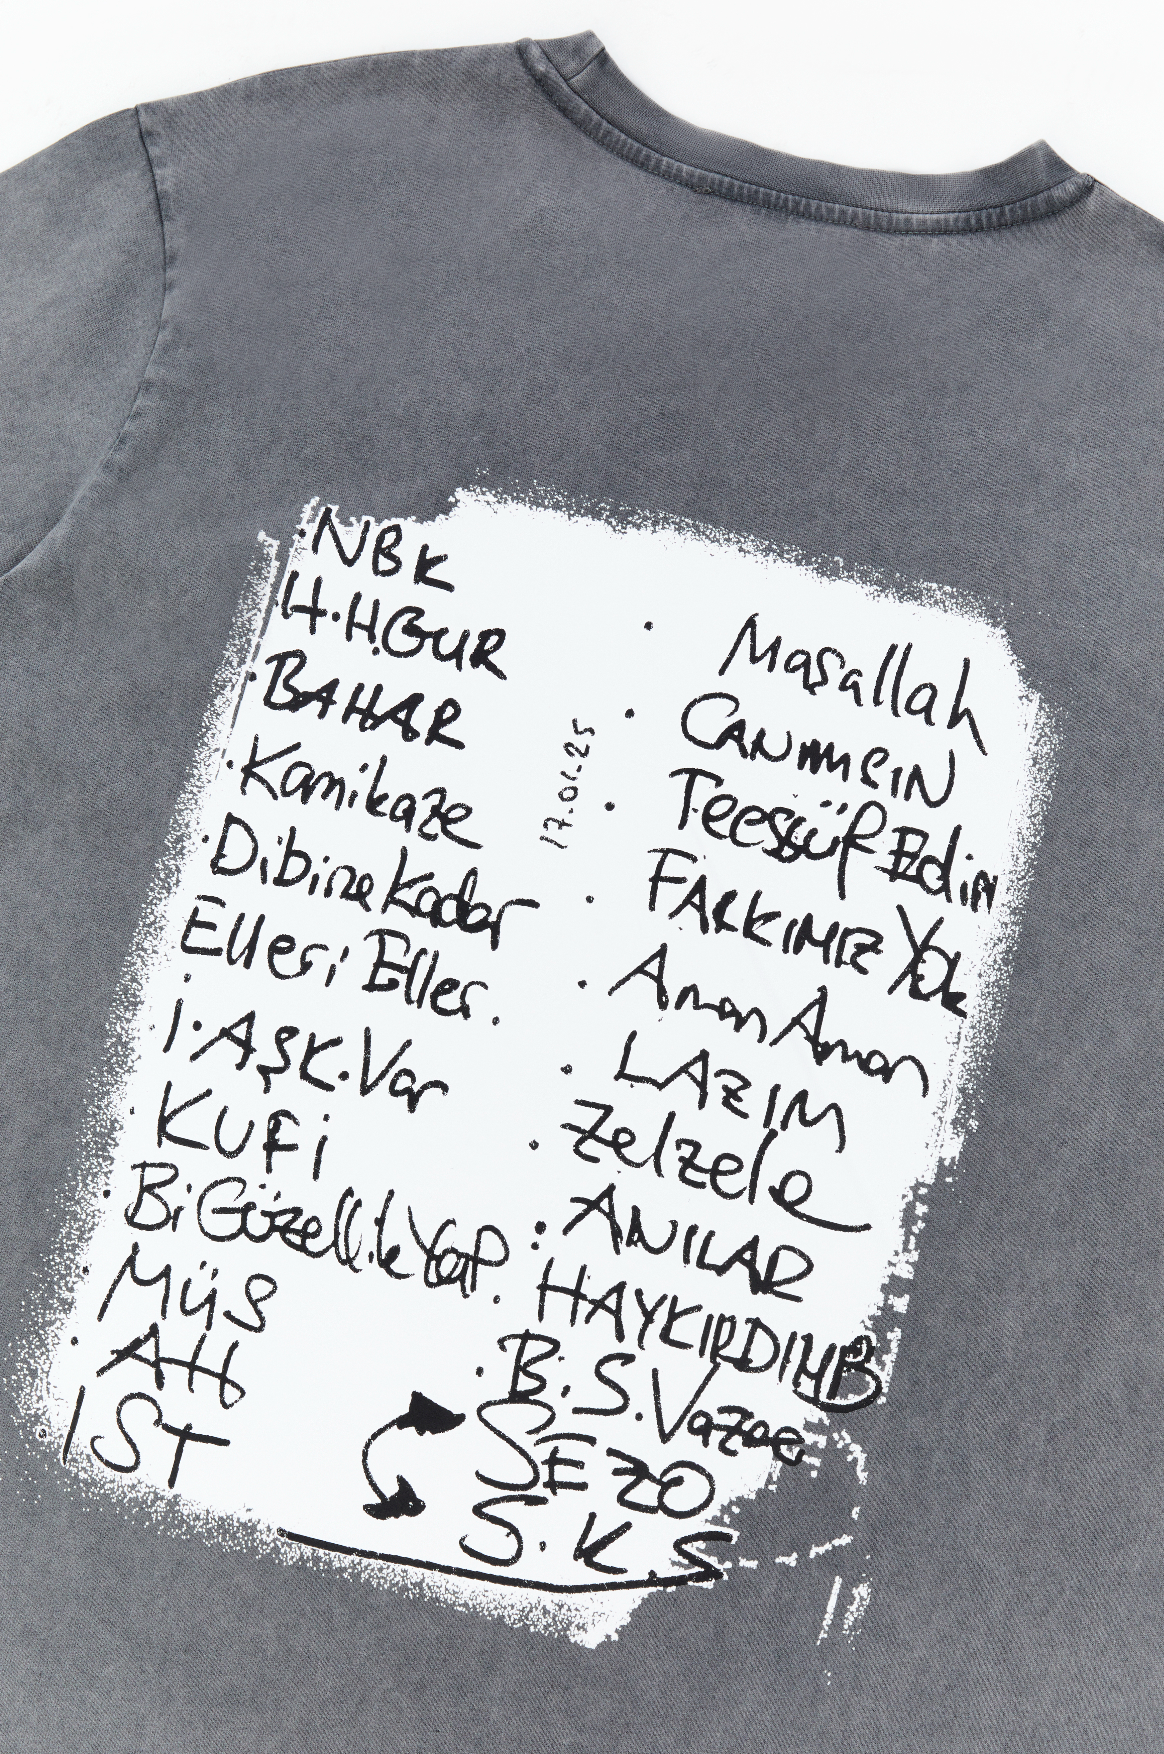 ·NBK
·H.H.GUR
·BAHAR
·Kamikaze
·Dibine Kadar
·Elleri Eller.
·İ.AŞK.Var
·KUFi
·Bi Güzellik Yap.
·MÜS
·AH
·IST
17.01.25
· Maşallah
· CANIMSIN
· Teessüf Edin
· FARKIMIZ Yok
· Aman Aman
· LAZIM
· Zelzele
: ANILAR
HAYKIRDIM
· B.S.Vazge
SEZO
S.K.S